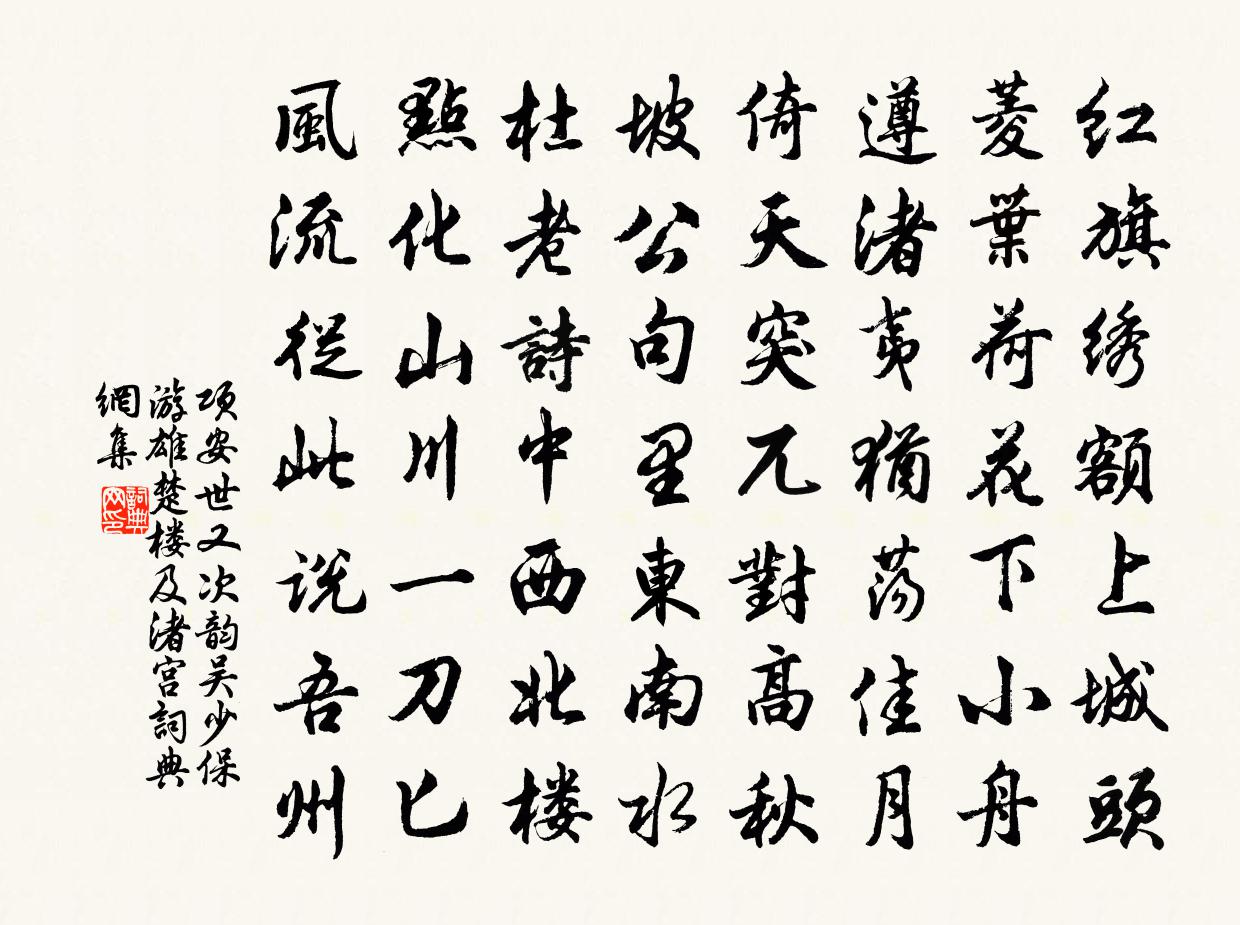 红旗绣额上城頭
菱葉荷花下小舟
遵渚夷猶荡佳月
倚天突兀對高秋
坡公句里東南水
杜老詩中西北楼
點化山川一刀匕
風流從此説吾州
项安世又次韵吴少保
游雄楚楼及渚宫詞典
網集
詞典网印